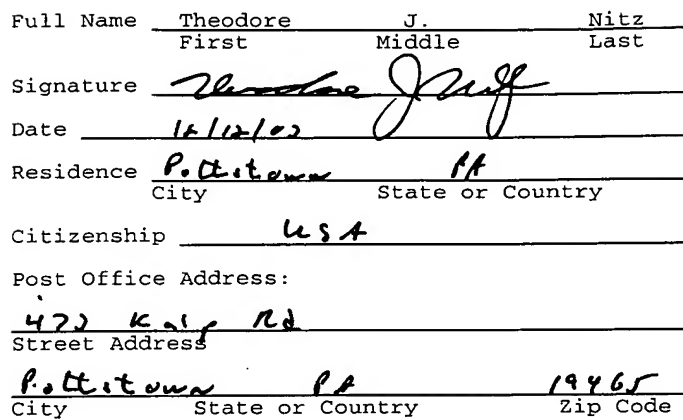 Full Name Theodore J. Nitz
First Middle Last
Signature Theodore J Nitz
Date 12/12/02
Residence Pottstown PA
City State or Country
Citizenship USA
Post Office Address:
Rd
Street Address
Pottstown PA 19465
City State or Country Zip Code